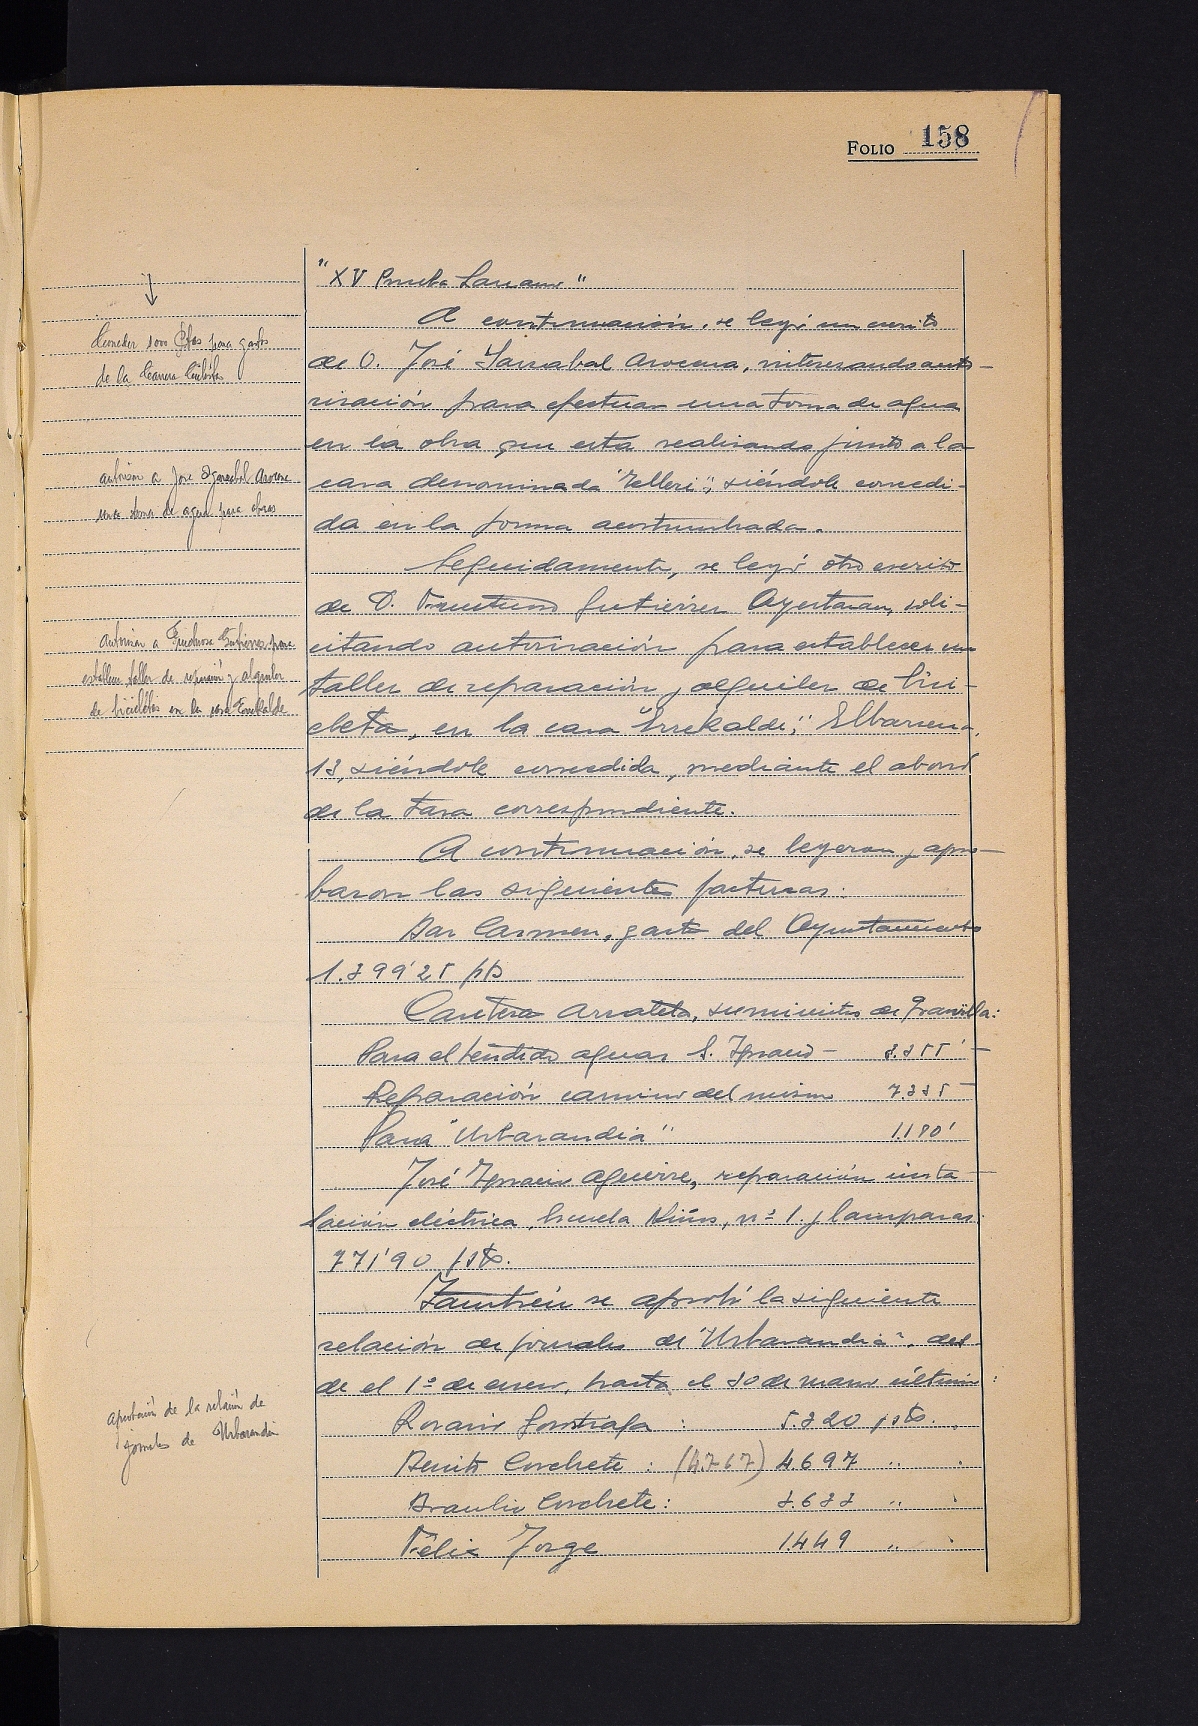 FOLIO 158
"XV Prueba Lasarte"
A continuación, se leyó un escrito
de D. José Igarzabal Arocena, interesando auto-
rización para efectuar una toma de agua
en la obra que esta realizando junto a la
casa denominada "Telleri", siéndole concedi-
da en la forma acostumbrada.
Seguidamente, se leyó otro escrito
de D. Fructuoso Gutiérrez Ayestaran, soli-
citando autorización para establecer un
taller de reparación y alquiler de bici-
cleta, en la casa "Errekalde", Elbarrena,
13, siéndole concedida, mediante el abono
de la tasa correspondiente.
A continuación, se leyeron y apro-
baron las siguientes facturas:
Bar Carmen, gasto del Ayuntamiento
1.399'25 pts
Cantera Arrateta, suministro de gravilla:
Para el tendido aguas S. Ignacio - 3.355'-
Reparación camino del mismo 7.335-
Para "Urbarandia" 1.180'
José Ignacio Aguirre, reparación insta-
lación eléctrica, Escuela Niños, nº 1. y lamparas
771'90 pts.
También se aprobó la siguiente
relación de jornales de "Urbarandia", des-
de el 1º de enero, hasta el 30 de marzo último:
Rosario Gontiaga : 5.320 pts.
Benito Corchete : (4.767) 4.697 "
Braulio Corchete: 3.633 "
Félix Jorge 1.449 "
Conceder 1000 Ptas para gastos
de la Carrera Ciclista
autorizar a Jose Igarzabal Arocena
una toma de agua para obras
Autorizar a Fructuoso Gutierrez para
establecer taller de reparación y alquiler
de bicicletas en la casa Errekalde
Aprobación de la relación de
jornales de Urbarandia